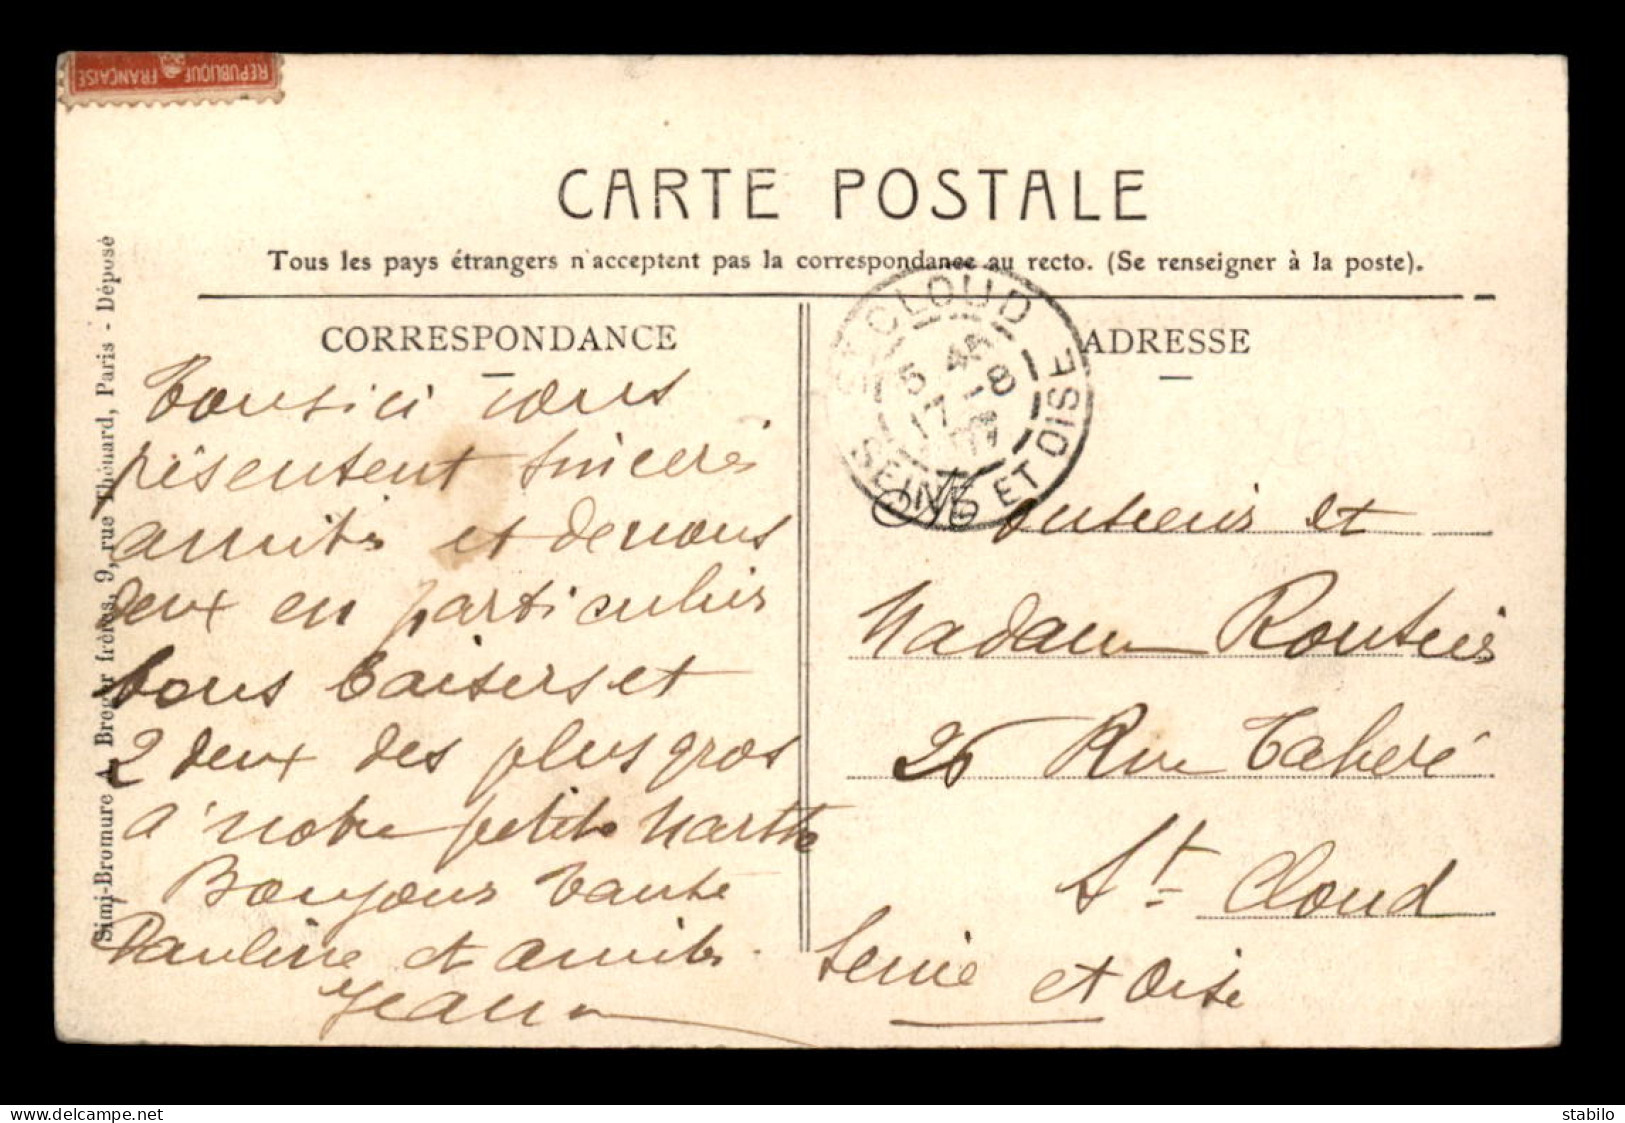 REPUBLIQUE FRANÇAISE
CARTE POSTALE
Tous les pays étrangers n'acceptent pas la correspondance au recto. (Se renseigner à la poste).
Simi-Bromure A. Breger frères, 9, rue Thénard, Paris - Déposé
CORRESPONDANCE
Tous ici vous
présentent sincères
amitiés et de nous
deux en particulier
bons baisers et
2 deux des plus gros
à notre petite Marthe
Bonjour tante
Pauline et amitiés.
Jeanne
ST CLOUD
5 45
17 -8
07
SEINE ET OISE
ADRESSE
et
Madame
26 Rue
St. Cloud
Seine et Oise
www.delcampe.net
stabilo